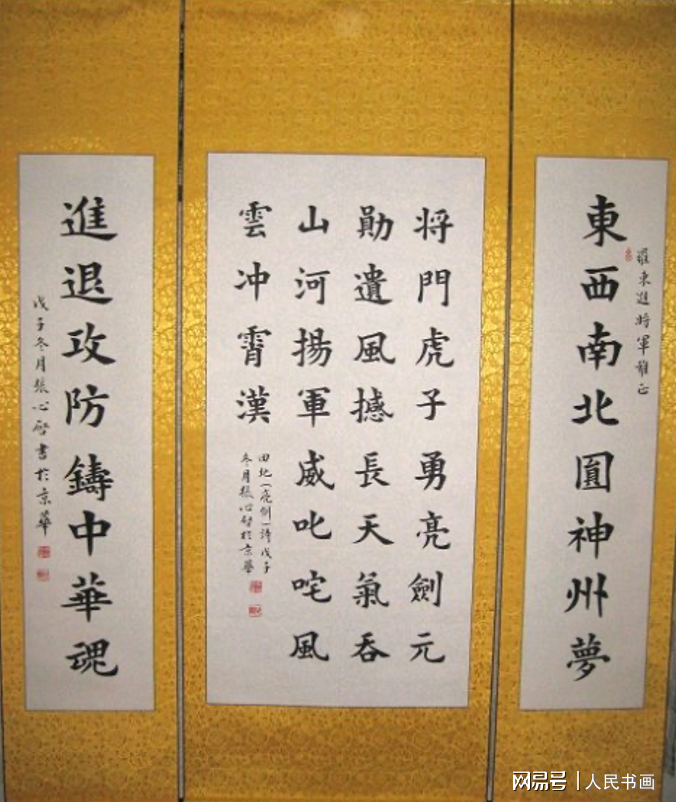 羅東進將軍雅正
東西南北圓神州夢
将門虎子勇亮劍元
勛遺風撼長天氣吞
山河揚軍威叱咤風
雲冲霄漢
田北(亮剑)詩戊子
冬月張心啓於京華
進退攻防鑄中華魂
戊子冬月張心啓書於京華
网易号 | 人民书画